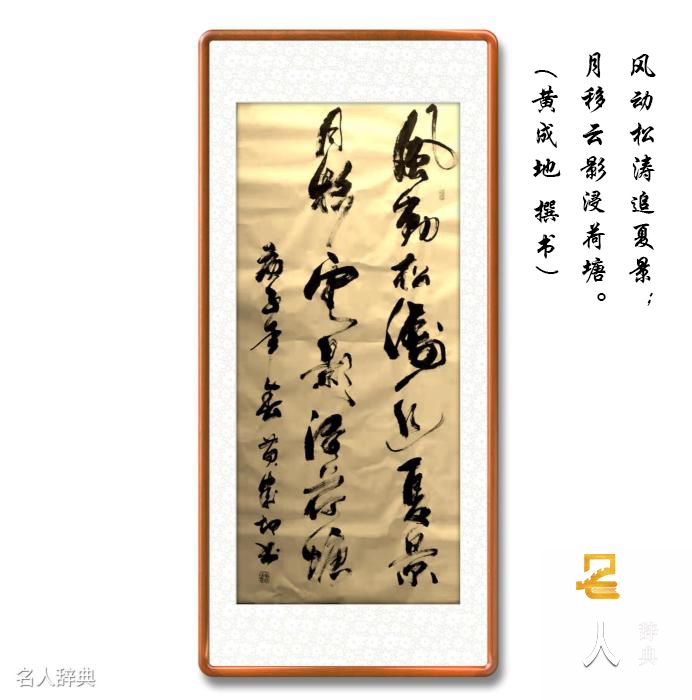 风动松涛追夏景；
月移云影浸荷塘。
（黄成地 撰书）
風動松濤追夏景
月移雲影浸荷塘
黄成地
名人辞典
名人辞典